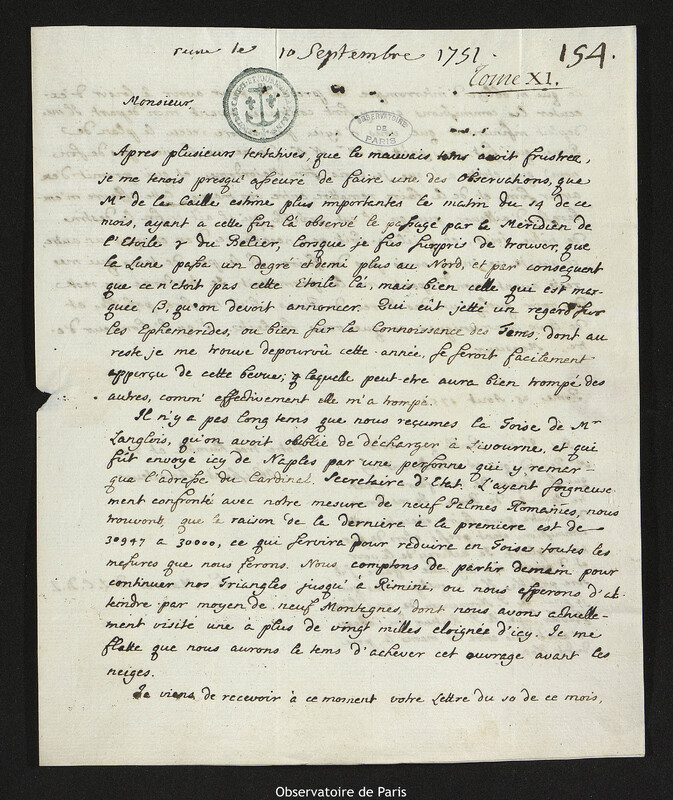 le 10 Septembre 1751 154.
Tome XI.
OBSERVATOIRE
DE
PARIS
Monsieur
Apres plusieurs tentatives, que le mauvais tems avoit frustrez,
je me tenois presqu' asseuré de faire une des Observations, que
Mr de la Caille estime plus importantes le matin du 14 de ce
mois, ayant a cette fin là observé le passage par le Meridien de
l'Etoile γ du Belier, lorsque je fus surpris de trouver, que
la Lune passa un degré et demi plus au Nord, et par consequent
que ce n'étoit pas cette étoile là, mais bien celle qui est mar-
quée B, qu'on devoit annoncer. Qui eût jetté un regard sur
les Ephemerides, ou bien sur la Connoissance des Tems, dont au
reste je me trouve depourvû cette année, se seroit facilement
apperçu de cette bevue; laquelle peut-etre aura bien trompé des
autres, comm' effectivement elle m'a trompé.
Il n'y a pas long tems que nous reçumes la Toise de Mr
Langlois, qu'on avoit oublié de décharger à Livourne, et qui
fût envoyé icy de Naples par une personne qui y remar-
qua l'adresse du Cardinal Secretaire d'Etat. L'ayant soigneuse-
ment confronté avec notre mesure de neuf Palmes Romaines, nous
trouvons, que la raison de la derniere à la premiere est de
30947 a 30000, ce qui servira pour reduire en Toises toutes les
mesures que nous ferons. Nous comptons de partir demain pour
continuer nos Triangles jusqu'à Rimini, ou nous esperons d'at-
teindre par moyen de neuf Montagnes, dont nous avons actuelle-
ment visité une à plus de vingt milles eloignée d'icy. Je me
flatte que nous aurons le tems d'achever cet ouvrage avant les
neiges.
Je viens de recevoir à ce moment votre Lettre du 10 de ce mois,
Observatoire de Paris